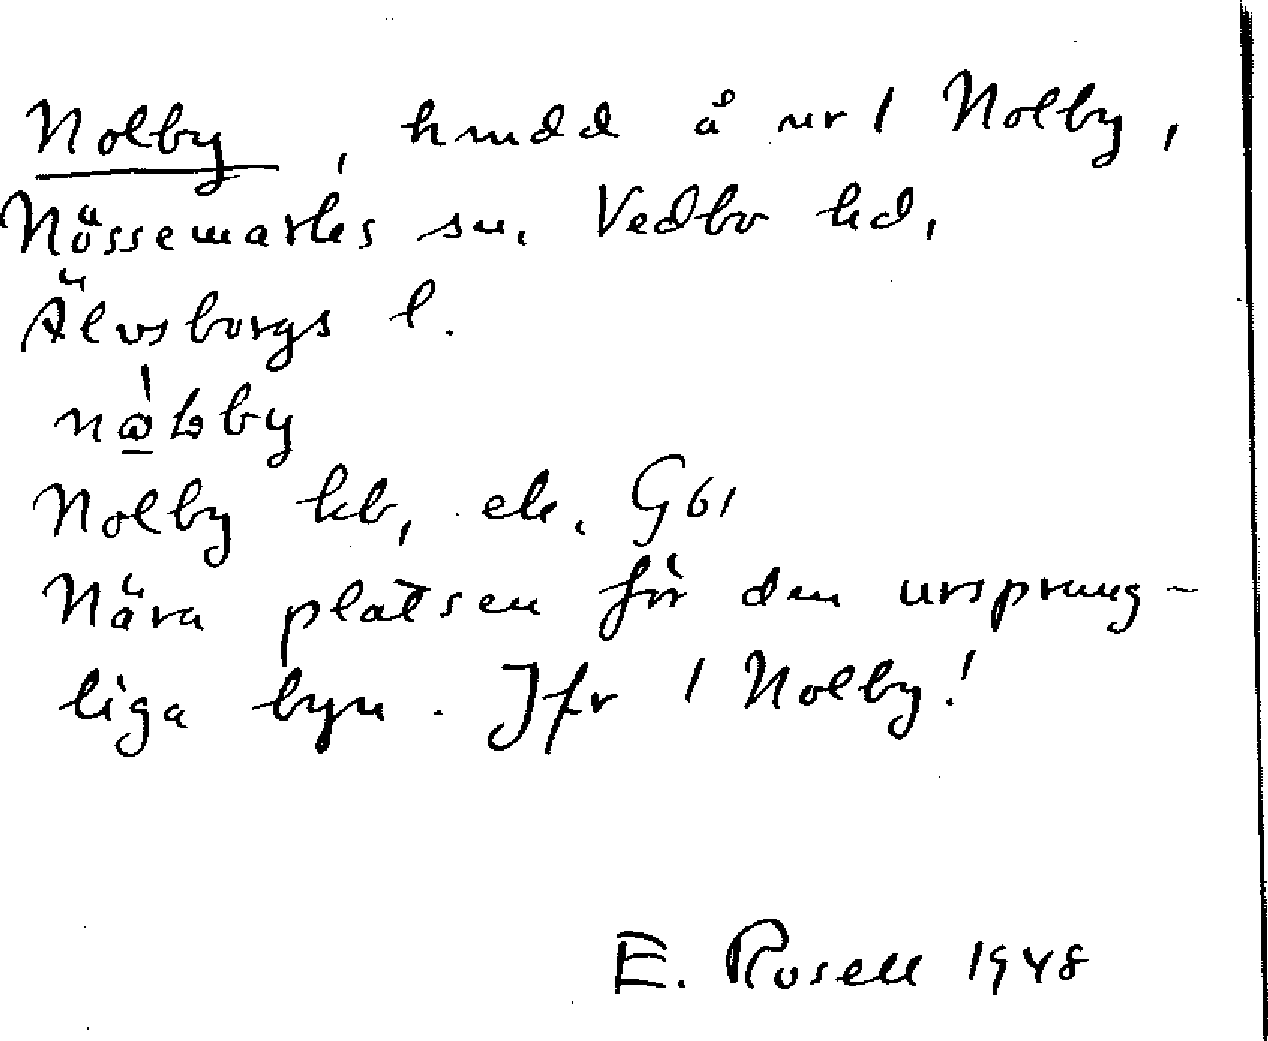 Nolby, hmdd å nr 1 Nolby,
Nössemarks sn. Vedbo hd,
Älvsborgs l.
Nolby kb, ek. G 61
Nära platsen för den ursprung-
liga byn. Jfr 1 Nolby!
E. Rosell 1948